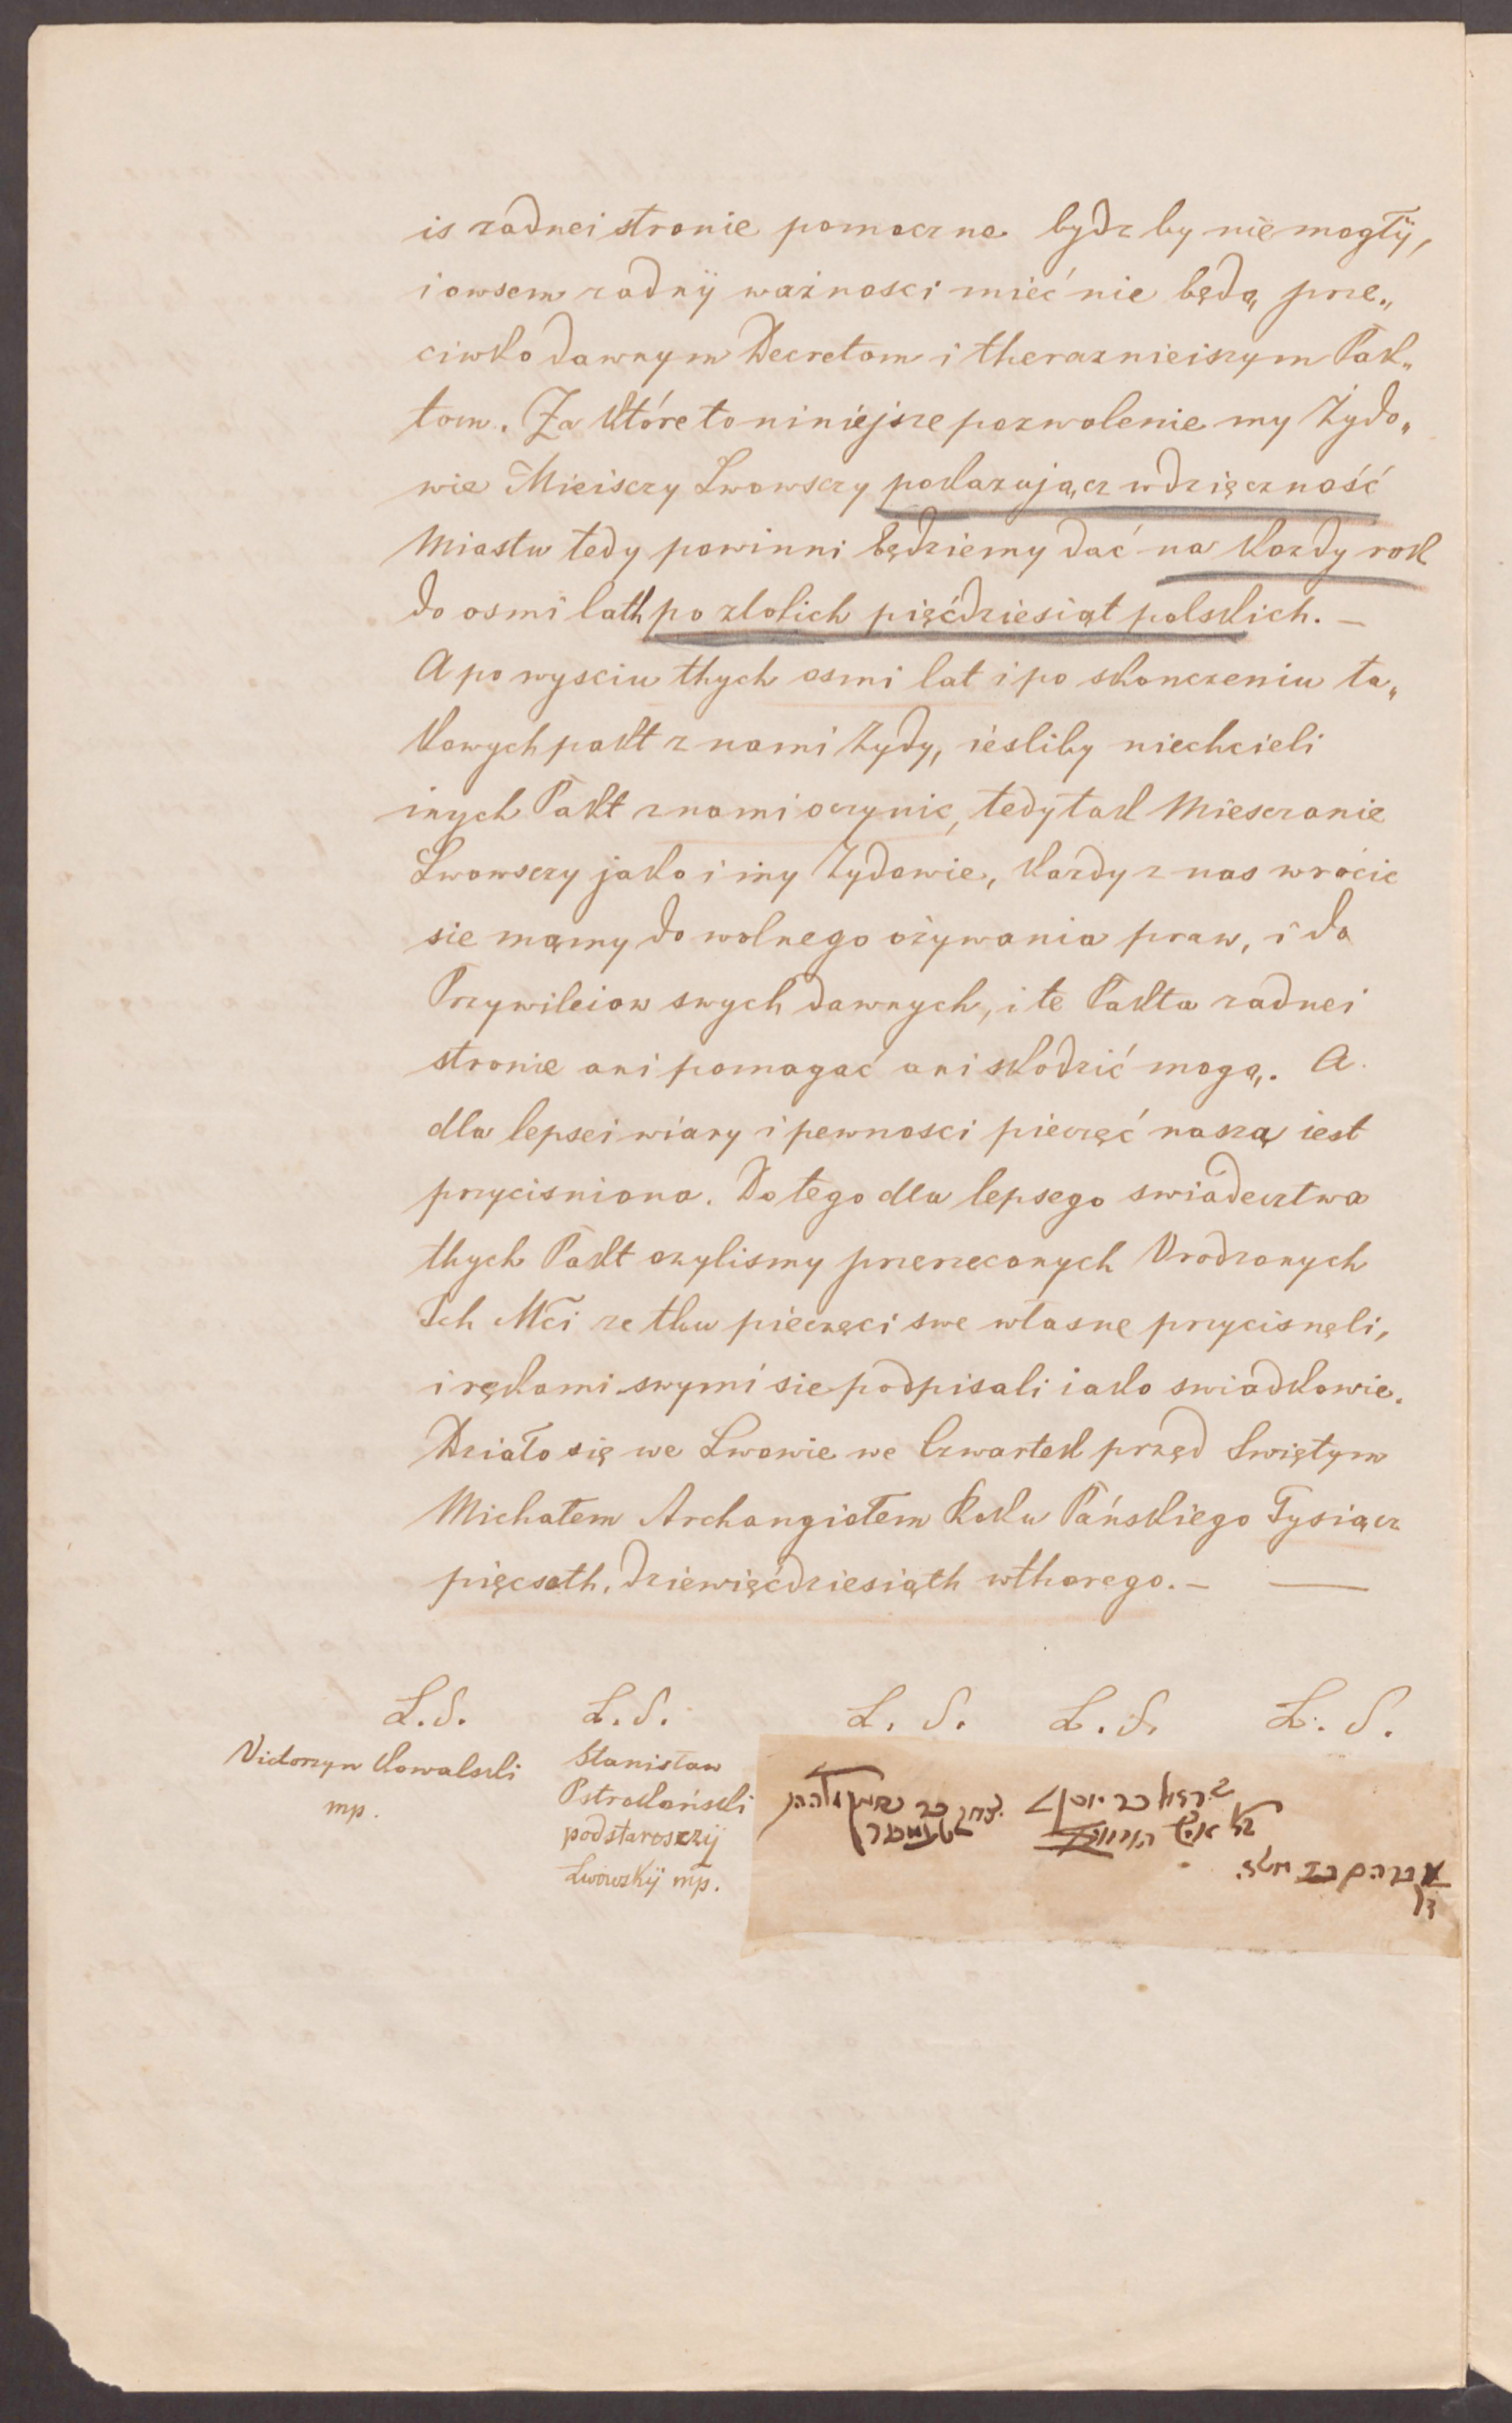 is zadnei stronie pomoczne bydz by nie mogły,
i owsem zadnÿ ważnosci mieć nie będą prze„
ciwko dawnym Decretom i theraznieiszym Pak„
tom. Za które to niniejsze pozwolenie my Żydo„
wie Mieisczy Lwowsczy pokazującz wdzięczność
Miastu tedy powinni będziemy dać na kozdy rok
do osmi lath po zlotich pięćdziesiąt polskich. —
A po wysciu thych osmi lat i po skonczeniu ta„
kowych pakt z nami Zydy, iesliby niechcieli
inych Pakt z nami oczynic, tedy tak Miesczanie
Lwowsczy jako i my Zydowie, kazdy z nas wrócic
sie mamy do wolnego ożywania praw, i do
Przywileiow swych dawnych, i te Pakta zadnei
stronie ani pomagać ani skodzić mogą. A
dla lepsei wiary i pewnosci pieczęć naszą iest
przycisniona. Do tego dla lepsego swiadecztwa
thych Pakt ozylismy przerzeconych Vrodzonych
Ich Mći ze thu pieczęci swe własne przycisnęli,
i rękami swymi sie podpisali iako swiadkowie.
Działo się we Lwowie we Czwartek przęd Swiętym
Michałem Archangiołem Roku Pańskiego Tysiącz
pięcsoth, dziewięćdziesiąth wthorego. — —
L.S. L.S. L.S. L.S. L.S.
Victorzyn Kowalski
mp.
Stanisław
Pstrokoński
podstaroszzij
Lwowskij mp.
יצחק בר נחמן
ישראל בר יוסף
אברהם בר